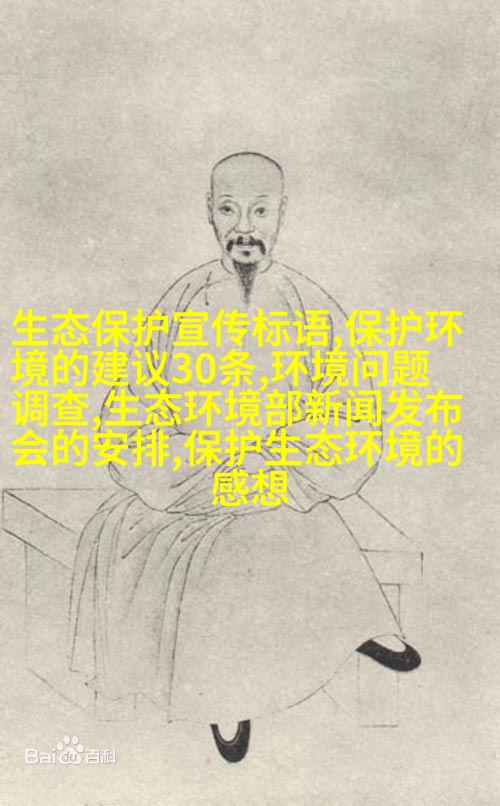 生态保护宣传标语,保护环
境的建议30条,环境问题
调查,生态环境部新闻发布
会的安排,保护生态环境的
感想
Bai du 百科